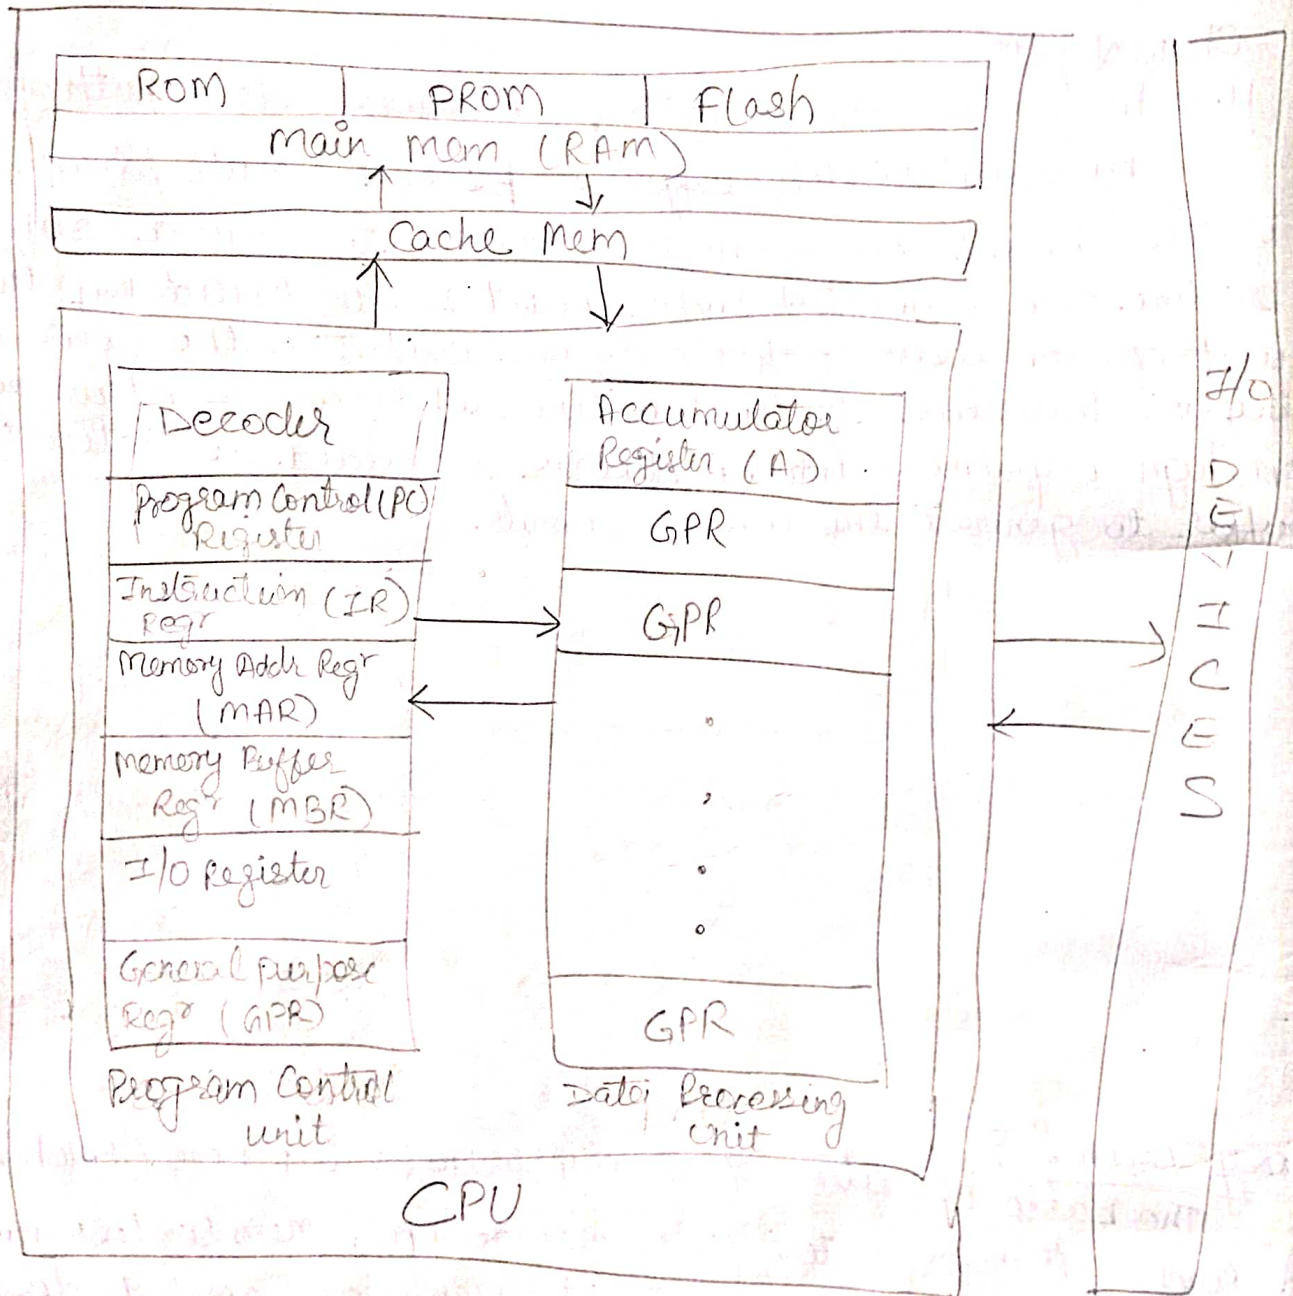 ROM
PROM
Flash
Main mem (RAM)
Cache Mem
Decoder
Program Control (PC)
Register
Instruction (IR)
Regr
Memory Addr Regr
(MAR)
Memory Buffer
Regr (MBR)
I/O Register
General purpose
Regr (GPR)
Program Control
unit
Accumulator
Register (A)
GPR
GPR
GPR
Data Processing
Unit
CPU
I/O
D
E
V
I
C
E
S